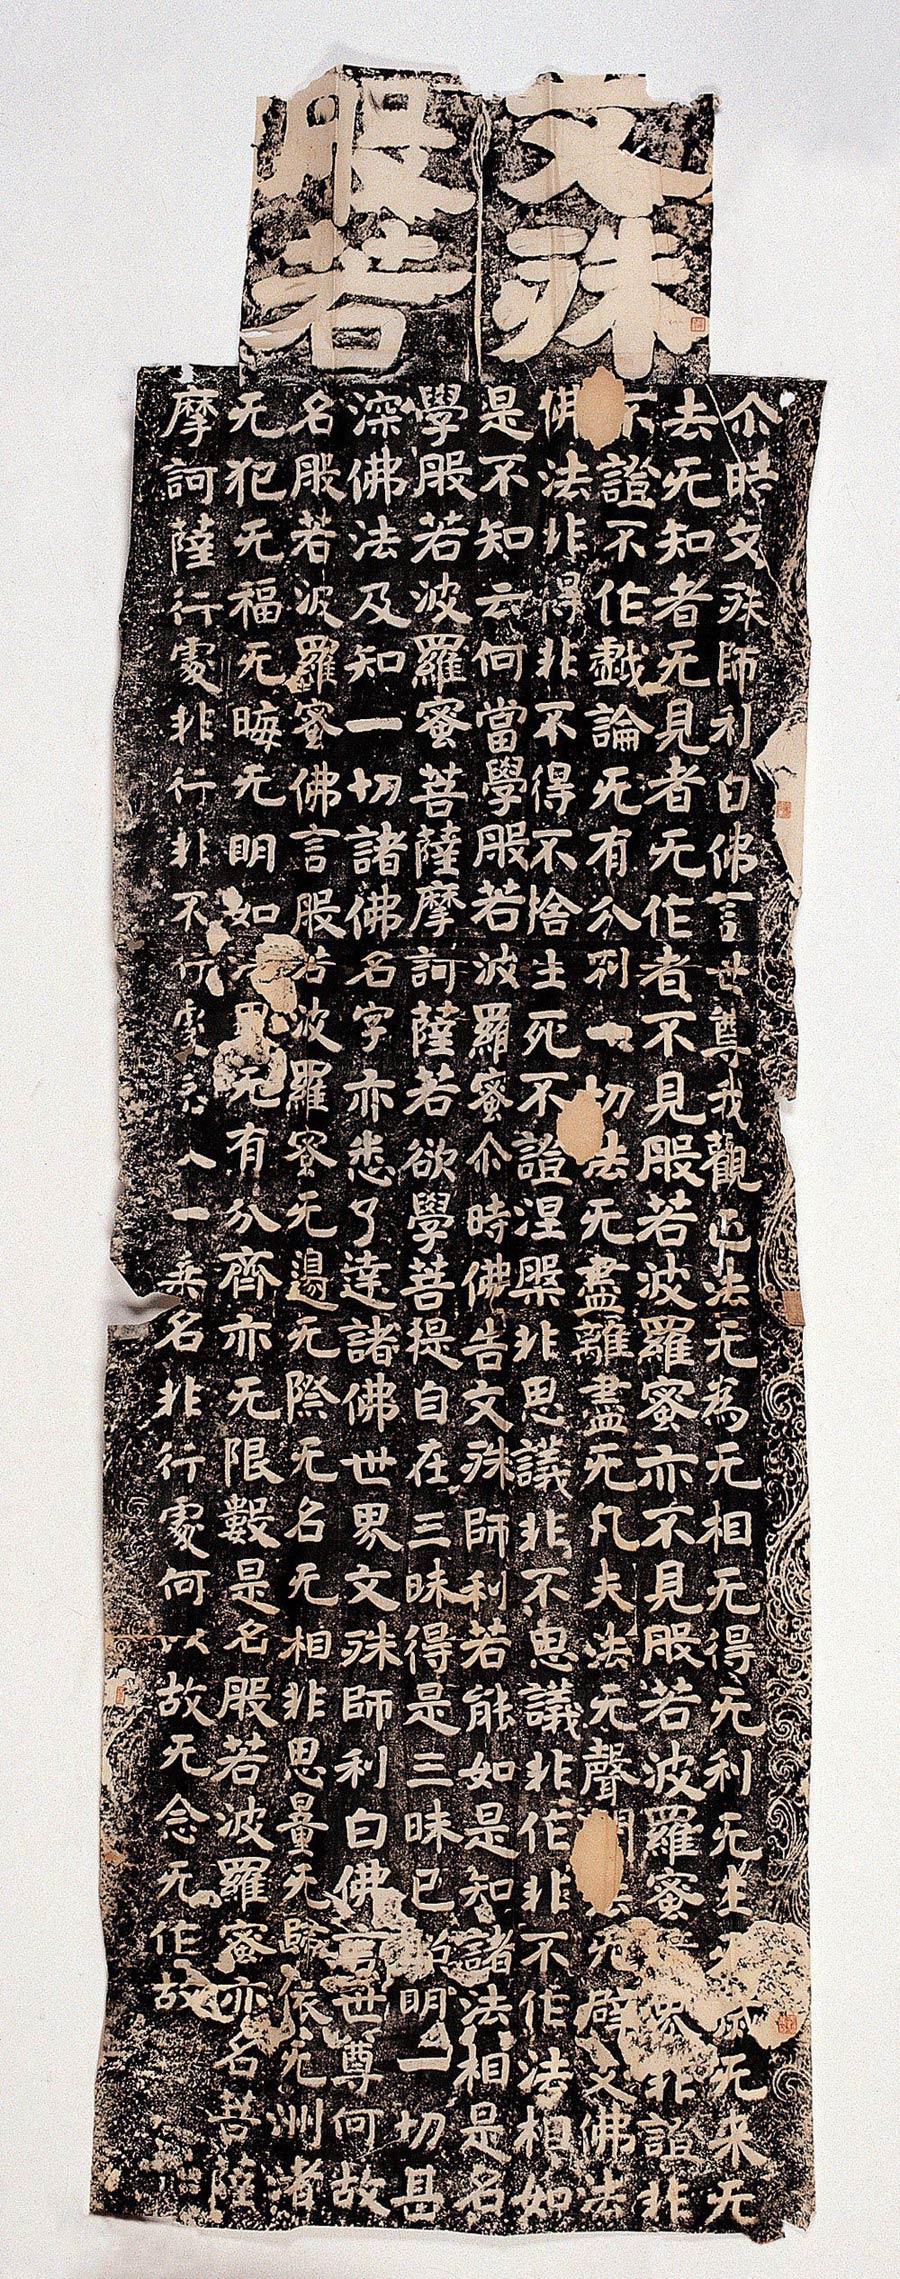 文殊
般若
尒時文殊師利白佛言世尊我觀正法无為无相无得无利无生无滅无来无
去无知者无見者无作者不見般若波羅蜜亦不見般若波羅蜜境界非證非
不證不作戲論无有分别一切法无盡離盡无凡夫法无聲聞法无辟支佛法
佛法非得非不得不捨生死不證涅槃非思議非不思議非作非不作法相如
是不知云何當學般若波羅蜜尒時佛告文殊師利若能如是知諸法相是名
學般若波羅蜜菩薩摩訶薩若欲學菩提自在三昧得是三昧已照明一切甚
深佛法及知一切諸佛名字亦悉了達諸佛世界文殊師利白佛言世尊何故
名般若波羅蜜佛言般若波羅蜜无邊无際无名无相非思量无歸依无洲渚
无犯无福无晦无明如法界无有分齊亦无限數是名般若波羅蜜亦名菩薩
摩訶薩行處非行非不行處悉入一乘名非行處何以故无念无作故